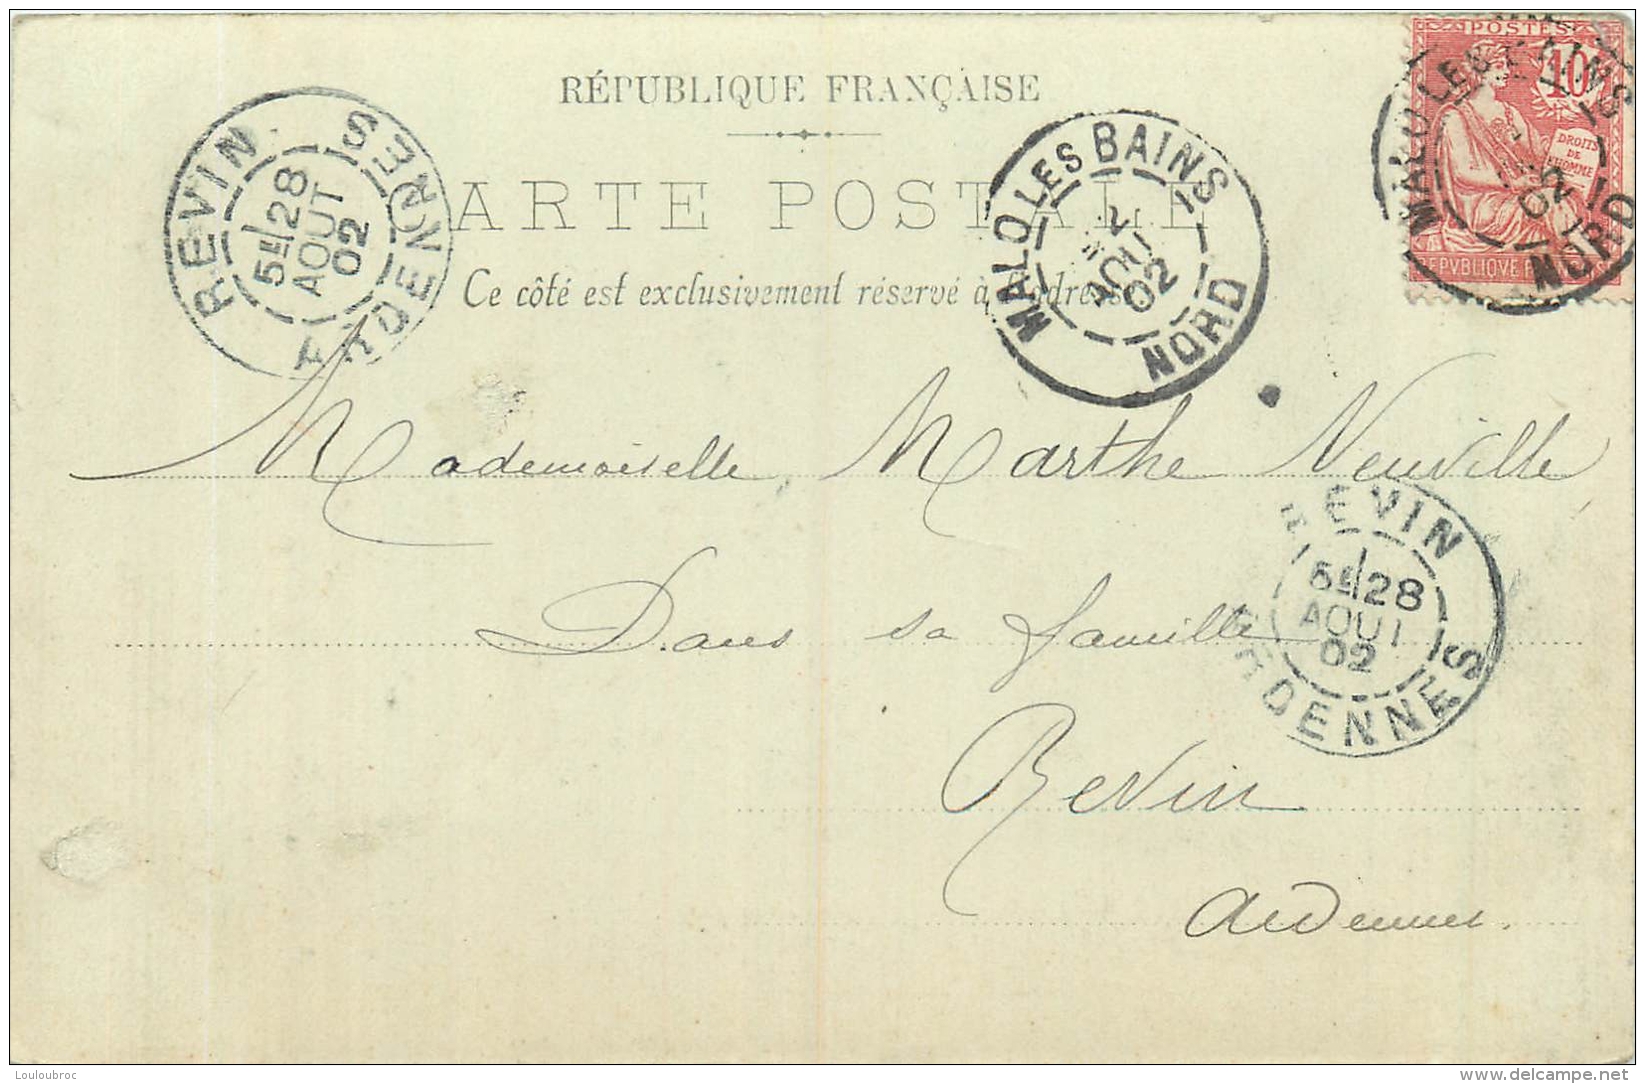 RÉPUBLIQUE FRANÇAISE
CARTE POSTALE
Ce côté est exclusivement réservé à l'adresse
POSTES
10
DROITS DE L'HOMME
REPVBLIQVE
MALO LES BAINS
02
NORD
MALO LES BAINS
AOUT
02
NORD
REVIN
5E/28
AOUT
02
ARDENNES
Mademoiselle Marthe Neuville
Dans sa famille
Revin
Ardennes.
REVIN
5E/28
AOUT
02
ARDENNES
Louloubroc
delcampe.net